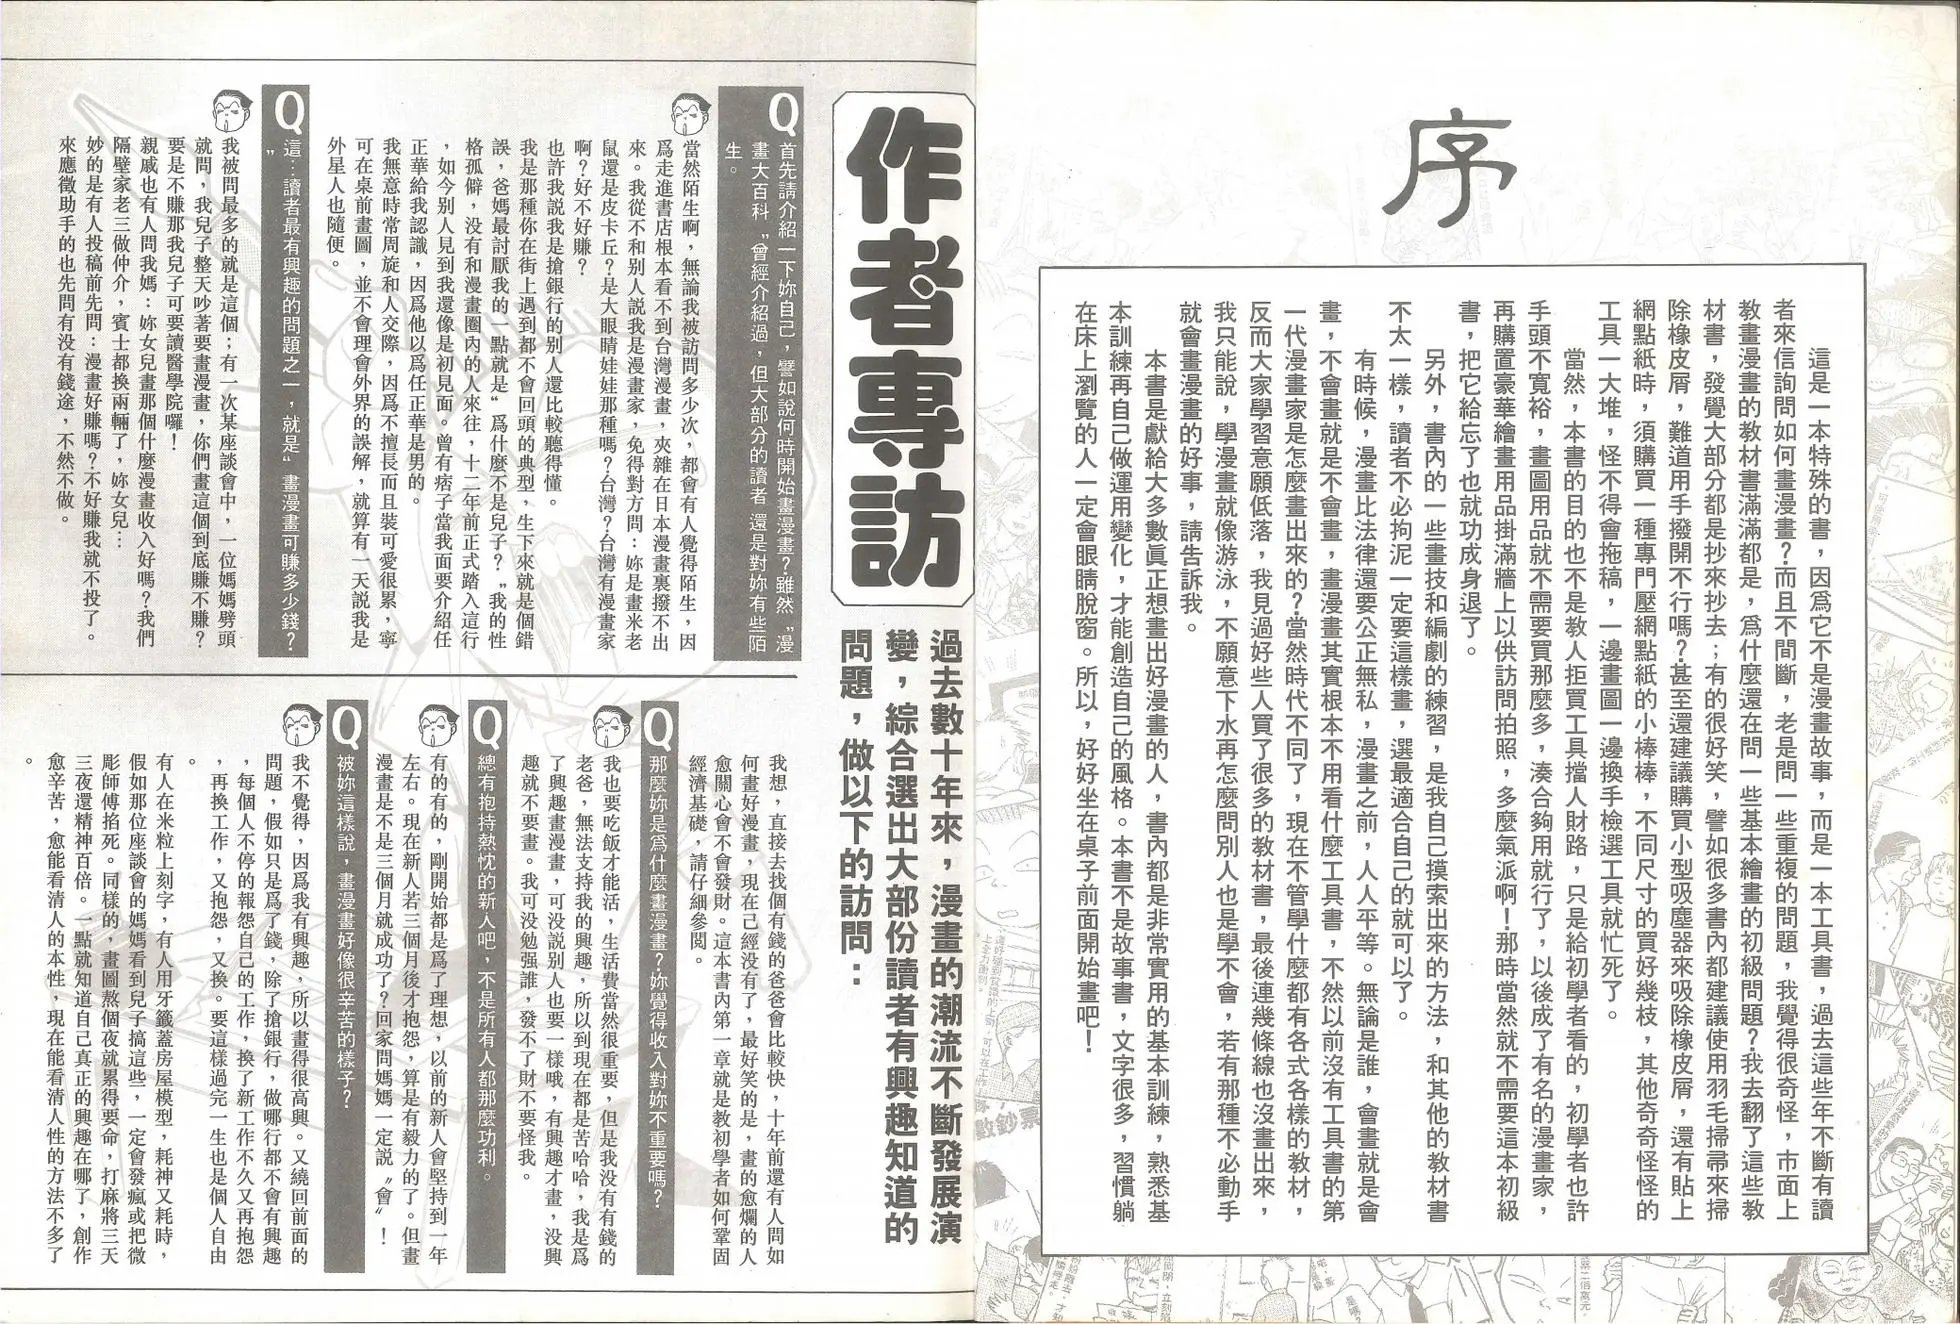 序
這是一本特殊的書，因為它不是漫畫故事，而是一本工具書，過去這些年不斷有讀
者來信詢問如何畫漫畫？而且不間斷，老是問一些重複的問題，我覺得很奇怪，市面上
教畫漫畫的教材書滿滿都是，為什麼還在問一些基本繪畫的初級問題？我去翻了這些教
材書，發覺大部分都是抄來抄去；有的很好笑，譬如很多書內都建議使用羽毛掃帚來掃
除橡皮屑，難道用手撥開不行嗎？甚至還建議購買小型吸塵器來吸除橡皮屑，還有貼上
網點紙時，須購買一種專門壓網點紙的小棒棒，不同尺寸的買好幾枝，其他奇奇怪怪的
工具一大堆，怪不得會拖稿，一邊畫圖一邊換手檢選工具就忙死了。
當然，本書的目的也不是教人拒買工具擋人財路，只是給初學者看的，初學者也許
手頭不寬裕，畫圖用品就不需要買那麼多，湊合夠用就行了，以後成了有名的漫畫家，
再購置豪華繪畫用品掛滿牆上以供訪問拍照，多麼氣派啊！那時當然就不需要這本初級
書，把它給忘了也就功成身退了。
另外，書內的一些畫技和編劇的練習，是我自己摸索出來的方法，和其他的教材書
不太一樣，讀者不必拘泥一定要這樣畫，選最適合自己的就可以了。
有時候，漫畫比法律還要公正無私，漫畫之前，人人平等。無論是誰，會畫就是會
畫，不會畫就是不會畫，畫漫畫其實根本不用看什麼工具書，不然以前沒有工具書的第
一代漫畫家是怎麼畫出來的？當然時代不同了，現在不管學什麼都有各式各樣的教材，
反而大家學習意願低落，我見過好些人買了很多的教材書，最後連幾條線也沒畫出來，
我只能說，學漫畫就像游泳，不願意下水再怎麼問別人也是學不會，若有那種不必動手
就會畫漫畫的好事，請告訴我。
本書是獻給大多數真正想畫出好漫畫的人，書內都是非常實用的基本訓練，熟悉基
本訓練再自己做運用變化，才能創造自己的風格。本書不是故事書，文字很多，習慣躺
在床上瀏覽的人一定會眼睛脫窗。所以，好好坐在桌子前面開始畫吧！
作者專訪
過去數十年來，漫畫的潮流不斷發展演
變，綜合選出大部份讀者有興趣知道的
問題，做以下的訪問：
Q
首先請介紹一下妳自己，譬如說何時開始畫漫畫？雖然〝漫
畫大百科〞曾經介紹過，但大部分的讀者 還是對妳有些陌
生。
當然陌生啊，無論我被訪問多少次，都會有人覺得陌生，因
為走進書店根本看不到台灣漫畫，夾雜在日本漫畫裏撥不出
來。我從不和別人說我是漫畫家，免得對方問：妳是畫米老
鼠還是皮卡丘？是大眼睛娃娃那種嗎？台灣？台灣有漫畫家
啊？好不好賺？
也許我說我是搶銀行的別人還比較聽得懂。
我是那種你在街上遇到都不會回頭的典型，生下來就是個錯
誤，爸媽最討厭我的一點就是〝為什麼不是兒子？〞我的性
格孤僻，沒有和漫畫圈內的人來往，十二年前正式踏入這行
，如今別人見到我還像是初見面。曾有痞子當我面要介紹任
正華給我認識，因為他以為任正華是男的。
我無意時常周旋和人交際，因為不擅長而且裝可愛很累，寧
可在桌前畫圖，並不會理會外界的誤解，就算有一天說我是
外星人也隨便。
Q
這…讀者最有興趣的問題之一，就是〝畫漫畫可賺多少錢？
〞
我被問最多的就是這個；有一次某座談會中，一位媽媽劈頭
就問，我兒子整天吵著要畫漫畫，你們畫這個到底賺不賺？
要是不賺那我兒子可要讀醫學院囉！
親戚也有人問我媽：妳女兒畫那個什麼漫畫收入好嗎？我們
隔壁家老三做仲介，賓士都換兩輛了，妳女兒…
妙的是有人投稿前先問：漫畫好賺嗎？不好賺我就不投了。
來應徵助手的也先問有沒有錢途，不然不做。
我想，直接去找個有錢的爸爸會比較快，十年前還有人問如
何畫好漫畫，現在已經沒有了，最好笑的是，畫的愈爛的人
愈關心會不會發財。這本書內第一章就是教初學者如何鞏固
經濟基礎，請仔細參閱。
Q
那麼妳是為什麼畫漫畫？妳覺得收入對妳不重要嗎？
我也要吃飯才能活，生活費當然很重要，但是我沒有有錢的
老爸，無法支持我的興趣，所以到現在都是苦哈哈，我是為
了興趣畫漫畫，可沒說別人也要一樣哦，有興趣才畫，沒興
趣就不要畫。我可沒勉強誰，發不了財不要怪我。
Q
總有抱持熱忱的新人吧，不是所有人都那麼功利。
有的有的，剛開始都是為了理想，以前的新人會堅持到一年
左右。現在新人若三個月後才抱怨，算是有毅力的了。但畫
漫畫是不是三個月就成功了？回家問媽媽一定說〝會〞！
Q
被妳這樣說，畫漫畫好像很辛苦的樣子？
我不覺得，因為我有興趣，所以畫得很高興。又繞回前面的
問題，假如只是為了錢，除了搶銀行，做哪行都不會有興趣
，每個人不停的報怨自己的工作，換了新工作不久又再抱怨
，再換工作，又抱怨，又換。要這樣過完一生也是個人自由
。
有人在米粒上刻字，有人用牙籤蓋房屋模型，耗神又耗時，
假如那位座談會的媽媽看到兒子搞這些，一定會發瘋或把微
彫師傅掐死。同樣的，畫圖熬個夜就累得要命，打麻將三天
三夜還精神百倍。一點就知道自己真正的興趣在哪了，創作
愈辛苦，愈能看清人的本性，現在能看清人性的方法不多了
。